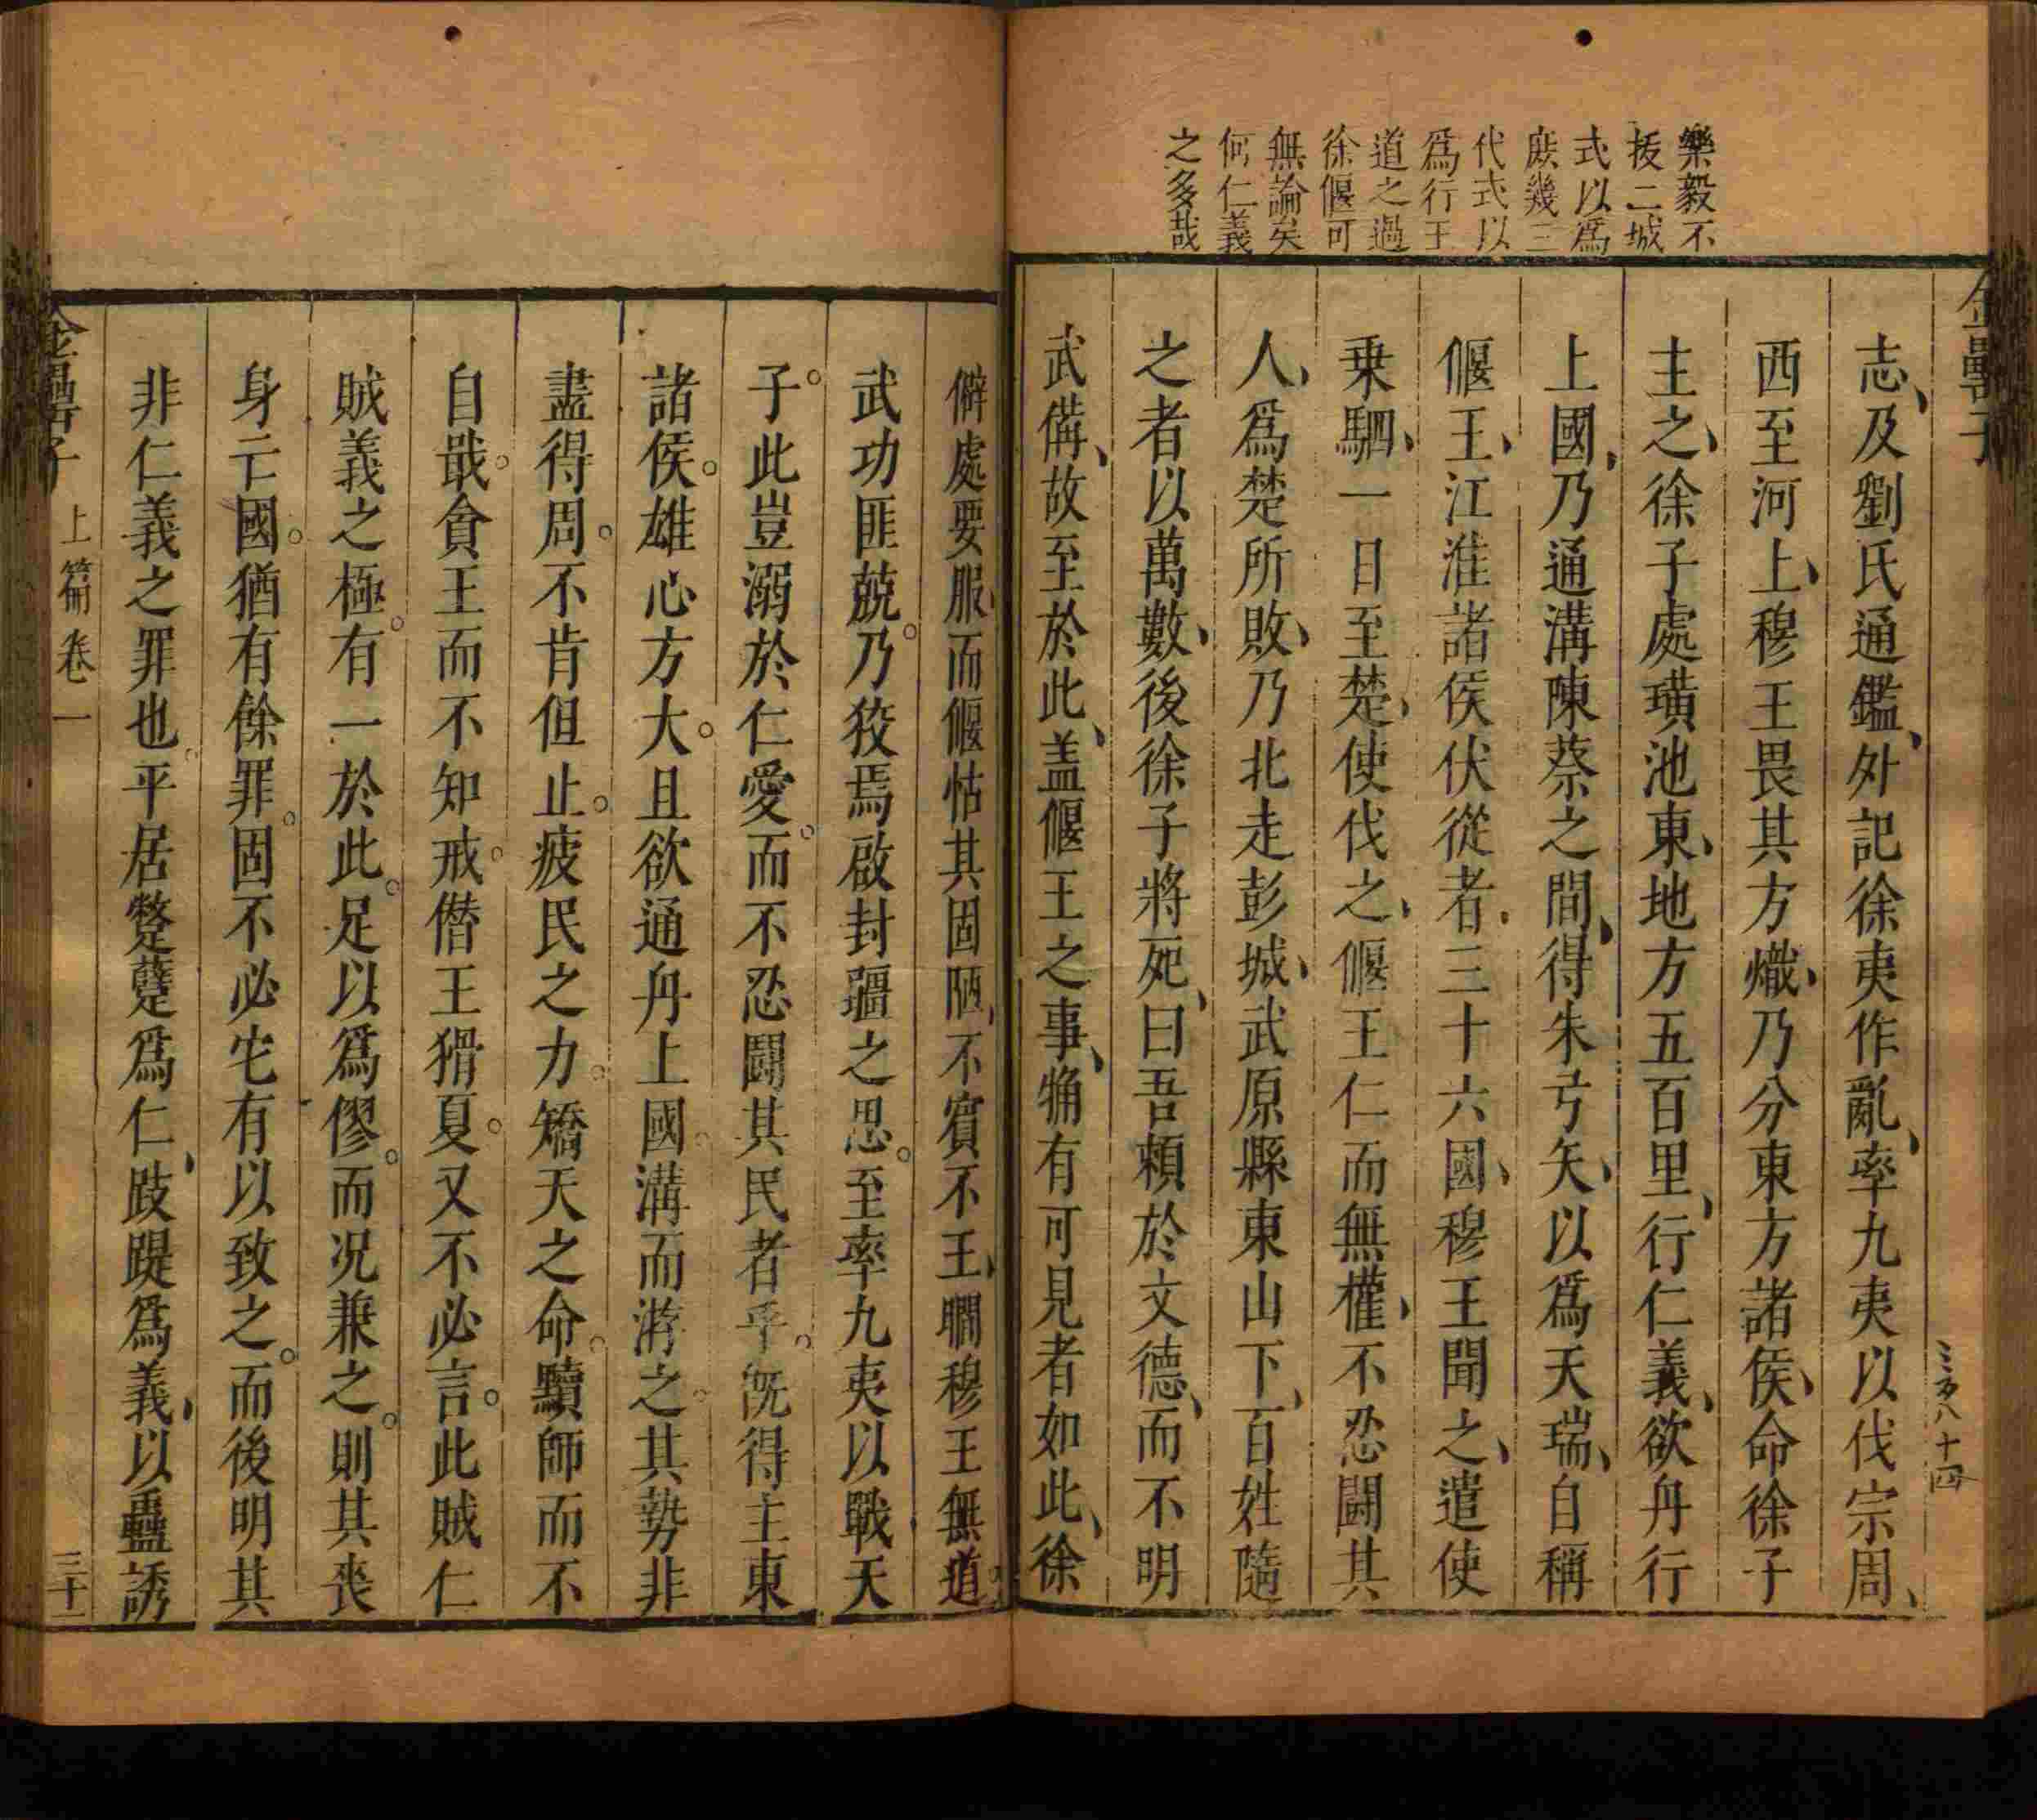 樂毅不
拔二城
式以爲
庶幾三
代式以
爲行王
道之過
徐偃可
無論矣
何仁義
之多哉
志、及劉氏通鑑、外記徐夷作亂、率九夷以伐宗周、
西至河上、穆王畏其方熾、乃分東方諸侯、命徐子
主之、徐子處璜池東、地方五百里、行仁義、欲舟行
上國、乃通溝陳蔡之間、得朱弓矢、以爲天瑞、自稱
偃王、江淮諸侯伏從者、三十六國、穆王聞之、遣使
乗駟、一日至楚、使伐之、偃王仁而無權、不忍鬪其
人、爲楚所敗、乃北走彭城、武原縣東山下、百姓隨
之者以萬數、後徐子將死、曰吾賴於文德、而不明
武備、故至於此、盖偃王之事、犕有可見者如此、徐
僻處要服、而偃怙其固陋、不賓不王、瞯穆王無道。
武功匪兢。乃狡焉啟封疆之思。至率九夷以戰天
子。此豈溺於仁愛。而不忍鬪其民者乎。旣得主東
諸侯。雄心方大。且欲通舟上國。溝而游之。其勢非
盡得周。不肯但止。疲民之力。矯天之命。黷師而不
自戢。貪王而不知戒。僭王猾夏。又不必言。此賊仁
賊義之極。有一於此。足以爲僇。而况兼之。則其喪
身亡國。猶有餘罪。固不必宅有以致之。而後明其
非仁義之罪也。平居蹩躠爲仁、跂踶爲義、以蠱誘
金罍子
上篇卷一
三十一